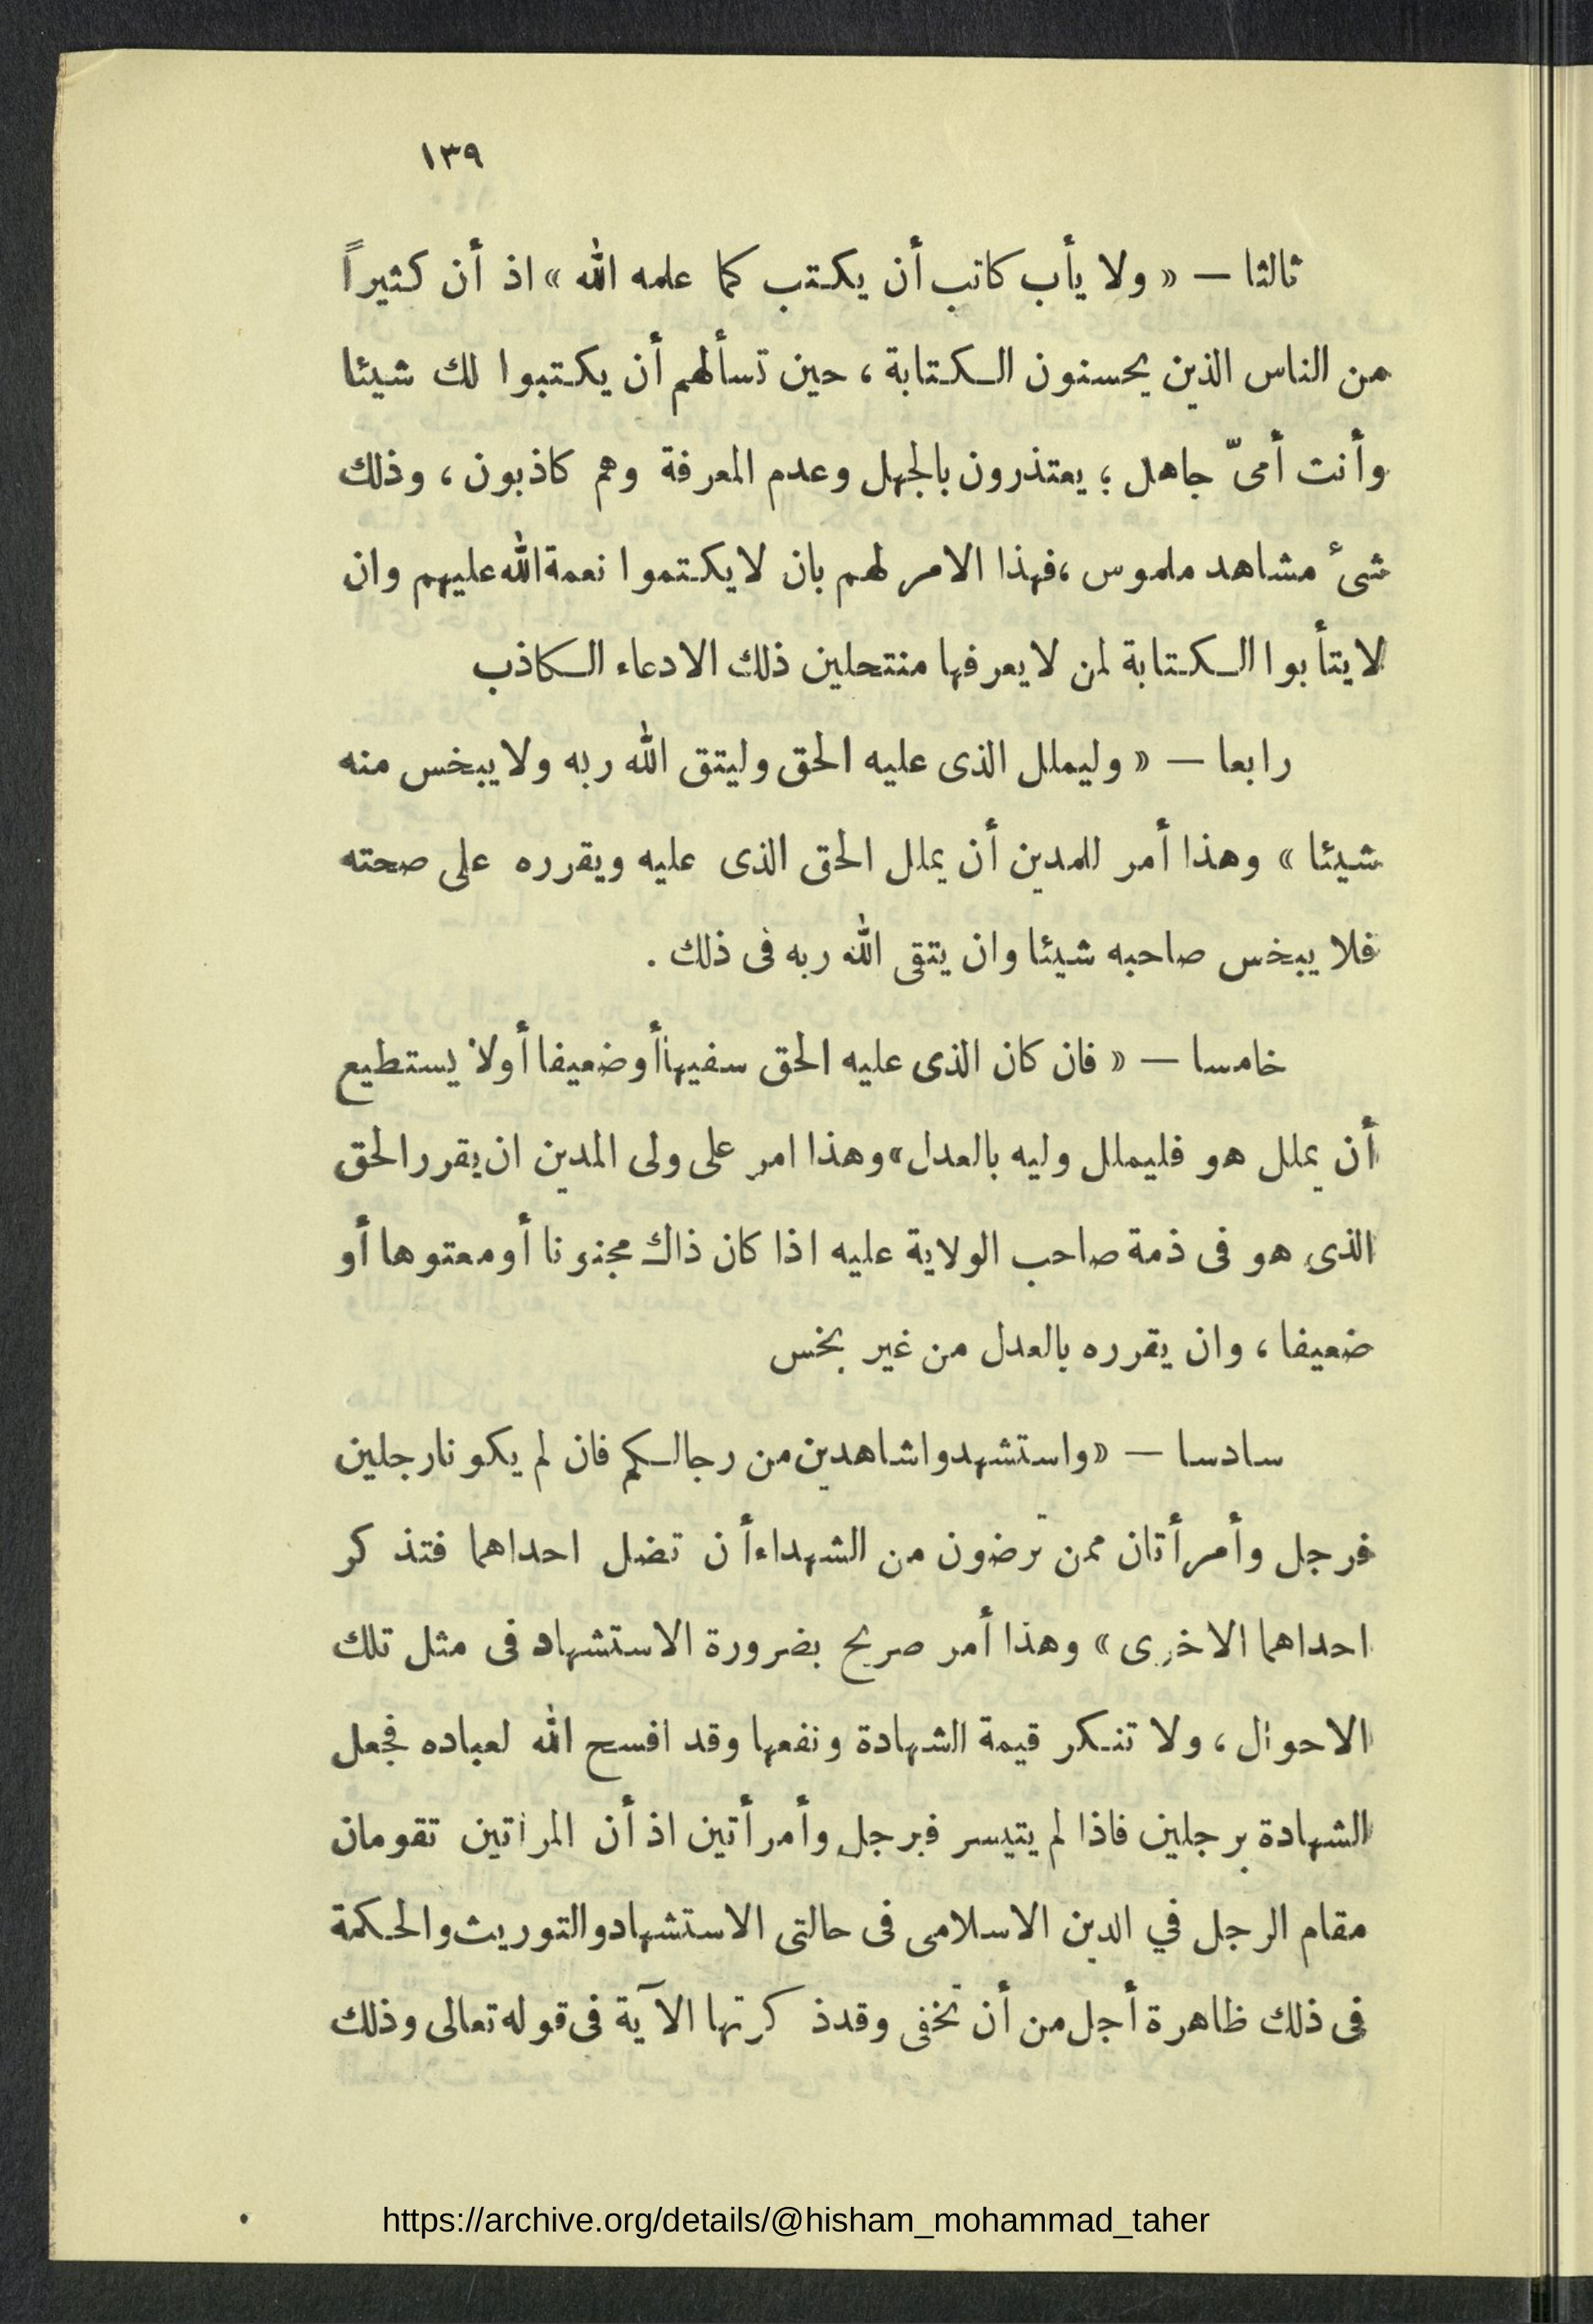 ١٣٩
ثالثا — « ولا يأب كاتب أن يكتب كما علمه الله » اذ أن كثيراً
من الناس الذين يحسنون الكتابة ، حين تسألهم أن يكتبوا لك شيئا
وأنت أمىّ جاهل ؛ يعتذرون بالجهل وعدم المعرفة وهم كاذبون ، وذلك
شىء مشاهد ملموس ، فهذا الامر لهم بان لا يكتموا نعمة الله عليهم وان
لا يتأبوا الكتابة لمن لا يعرفها منتحلين ذلك الادعاء الكاذب
رابعا — « وليملل الذى عليه الحق وليتق الله ربه ولا يبخس منه
شيئا » وهذا أمر للمدين أن يملل الحق الذى عليه ويقرره على صحته
فلا يبخس صاحبه شيئا وان يتقى الله ربه فى ذلك .
خامسا — « فان كان الذى عليه الحق سفيها أو ضعيفا أو لا يستطيع
أن يملل هو فليملل وليه بالعدل » وهذا امر على ولى المدين ان يقرر الحق
الذى هو فى ذمة صاحب الولاية عليه اذا كان ذاك مجنونا أو معتوها أو
ضعيفا ، وان يقرره بالعدل من غير بخس
سادسا — « واستشهدوا شاهدين من رجالكم فان لم يكونا رجلين
فرجل وأمرأتان ممن ترضون من الشهداء أن تضل احداهما فتذكر
احداهما الاخرى » وهذا أمر صريح بضرورة الاستشهاد فى مثل تلك
الاحوال ، ولا تنكر قيمة الشهادة ونفعها وقد افسح الله لعباده فجعل
الشهادة برجلين فاذا لم يتيسر فبرجل وأمرأتين اذ أن المرأتين تقومان
مقام الرجل في الدين الاسلامى فى حالتى الاستشهاد والتوريث والحكمة
فى ذلك ظاهرة أجل من أن تخفى وقد ذكرتها الآية فى قوله تعالى وذلك
https://archive.org/details/@hisham_mohammad_taher